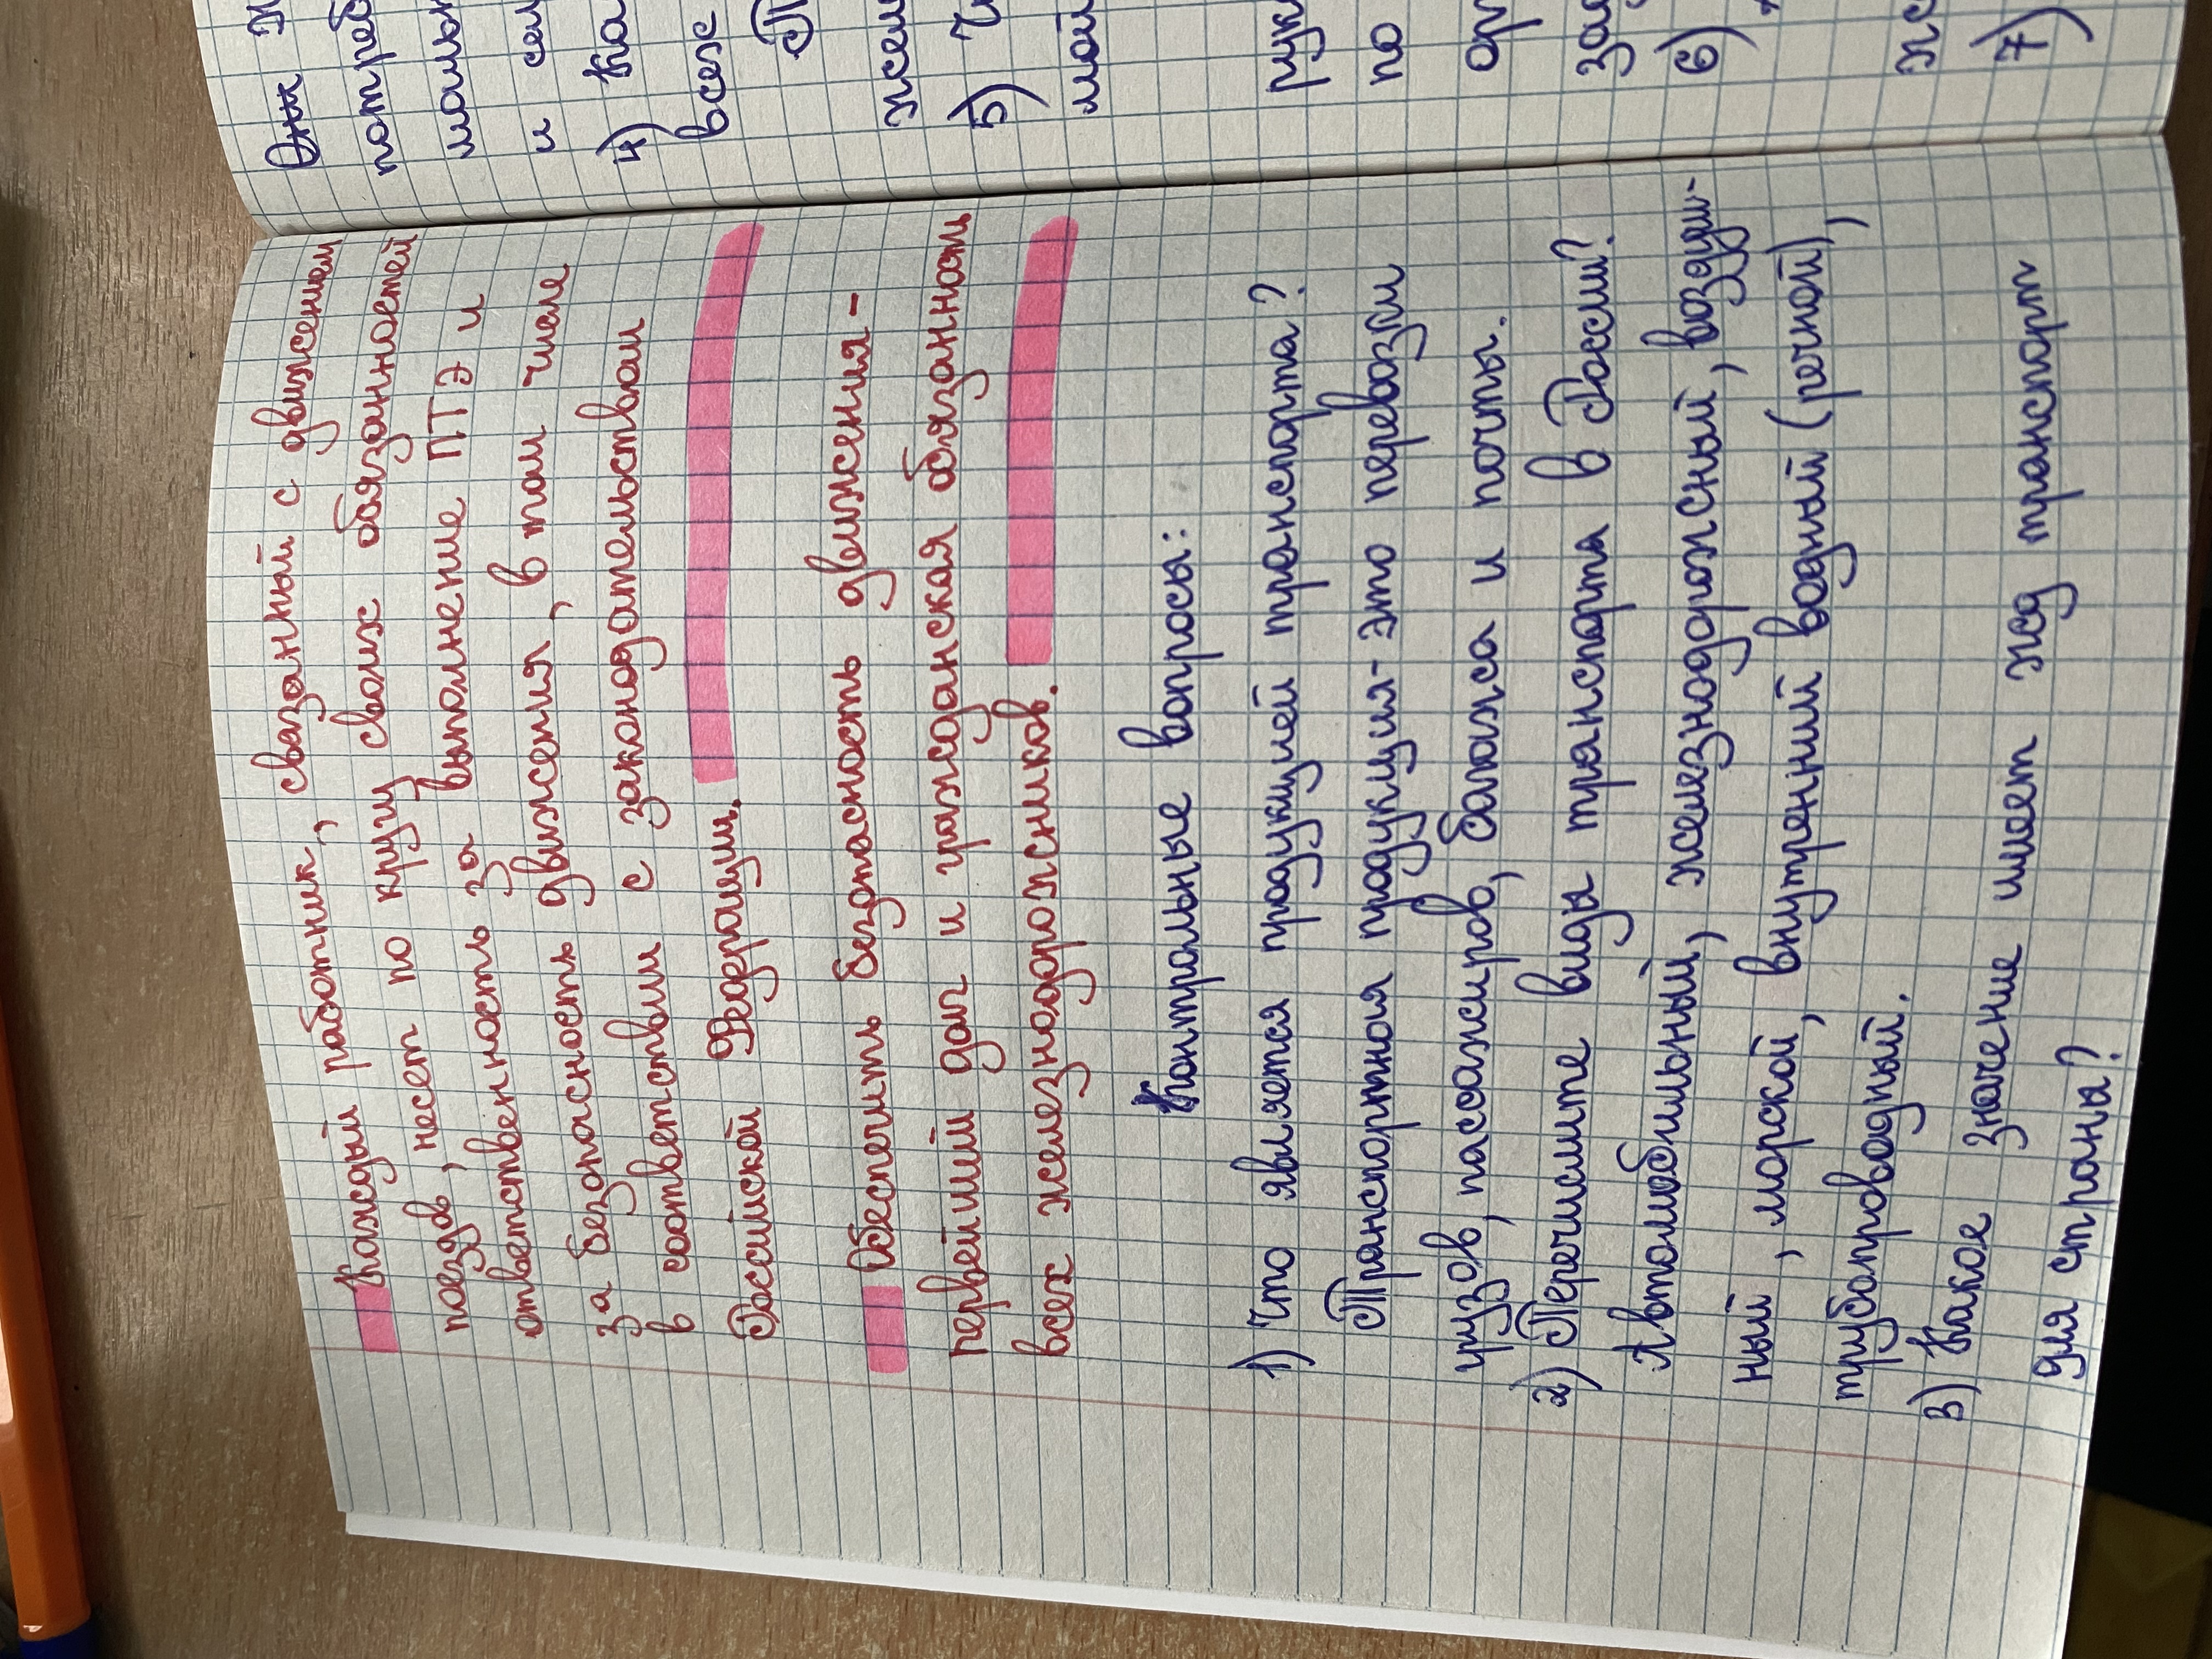 Каждый работник, связанный с движением
поездов, несет по кругу своих обязанностей
ответственность за выполнение ПТЭ и
за безопасность движения, в том числе
в соответствии с законодательством
Российской Федерации.
Обеспечить безопасность движения-
первейший долг и гражданская обязанность
всех железнодорожников.
Контрольные вопросы:
1) Что является продукцией транспорта?
Транспортная продукция-это перевозки
грузов, пассажиров, багажа и почты.
2) Перечислите виды транспорта в России?
Автомобильный, железнодорожный, воздуш-
ный, морской, внутренний водный (речной),
трубопроводный.
3) Какое значение имеет жд транспорт
для страны?
потреб
и сел
4) Ка
всех
жел
5) Ч
мой
рук
по
ор
6)
7)